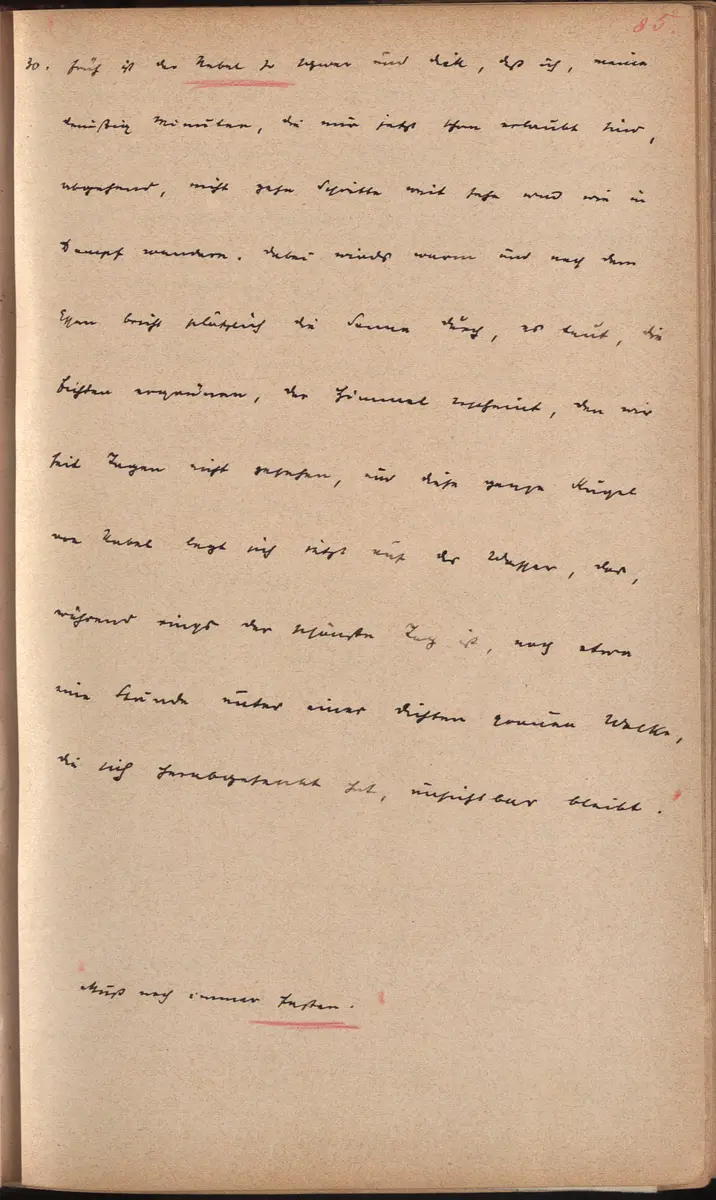 85.
30. Früh ist der Nebel so schwer und dick, daß ich, meine
dreißig Minuten, die mir jetzt schon erlaubt sind,
abgehend, nicht zehn Schritte weit sehe und wie in
Dampf wandere. Dabei wirds warm und nach dem
Essen bricht plötzlich die Sonne durch, es taut, die
Fichten ergrünen, der Himmel erscheint, den wir
seit Tagen nicht gesehen, und diese ganze Kugel
von Nebel legt sich jetzt auf das Wasser, das,
während rings der schönste Tag ist, noch etwa
eine Stunde unter einer dichten grauen Wolke,
die sich herabgesenkt hat, unsichtbar bleibt.
Muß noch immer fasten.